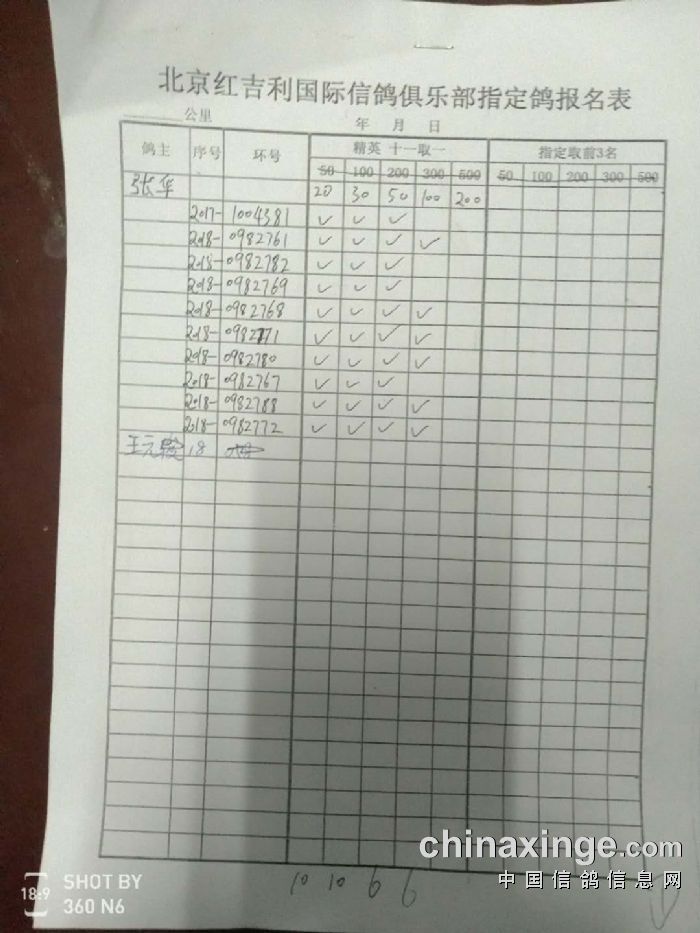 北京红吉利国际信鸽俱乐部指定鸽报名表
______公里 年 月 日
鸽主 序号 环号 精英 十一取一 指定取前3名
50 100 200 300 500 50 100 200 300 500
张华 20 30 50 100 200
2017- 1004381 ✓ ✓ ✓
2018- 0982761 ✓ ✓ ✓ ✓
2018- 0982782 ✓ ✓ ✓
2018- 0982769 ✓ ✓ ✓
2018- 0982768 ✓ ✓ ✓ ✓
2018- 0982771 ✓ ✓ ✓ ✓
2018- 0982780 ✓ ✓ ✓ ✓
2018- 0982767 ✓ ✓ ✓
2018- 0982788 ✓ ✓ ✓ ✓
2018- 0982772 ✓ ✓ ✓ ✓
王元 18
10 10 6 6
chinaxinge.com
中国信鸽信息网
18:9 SHOT BY
360 N6